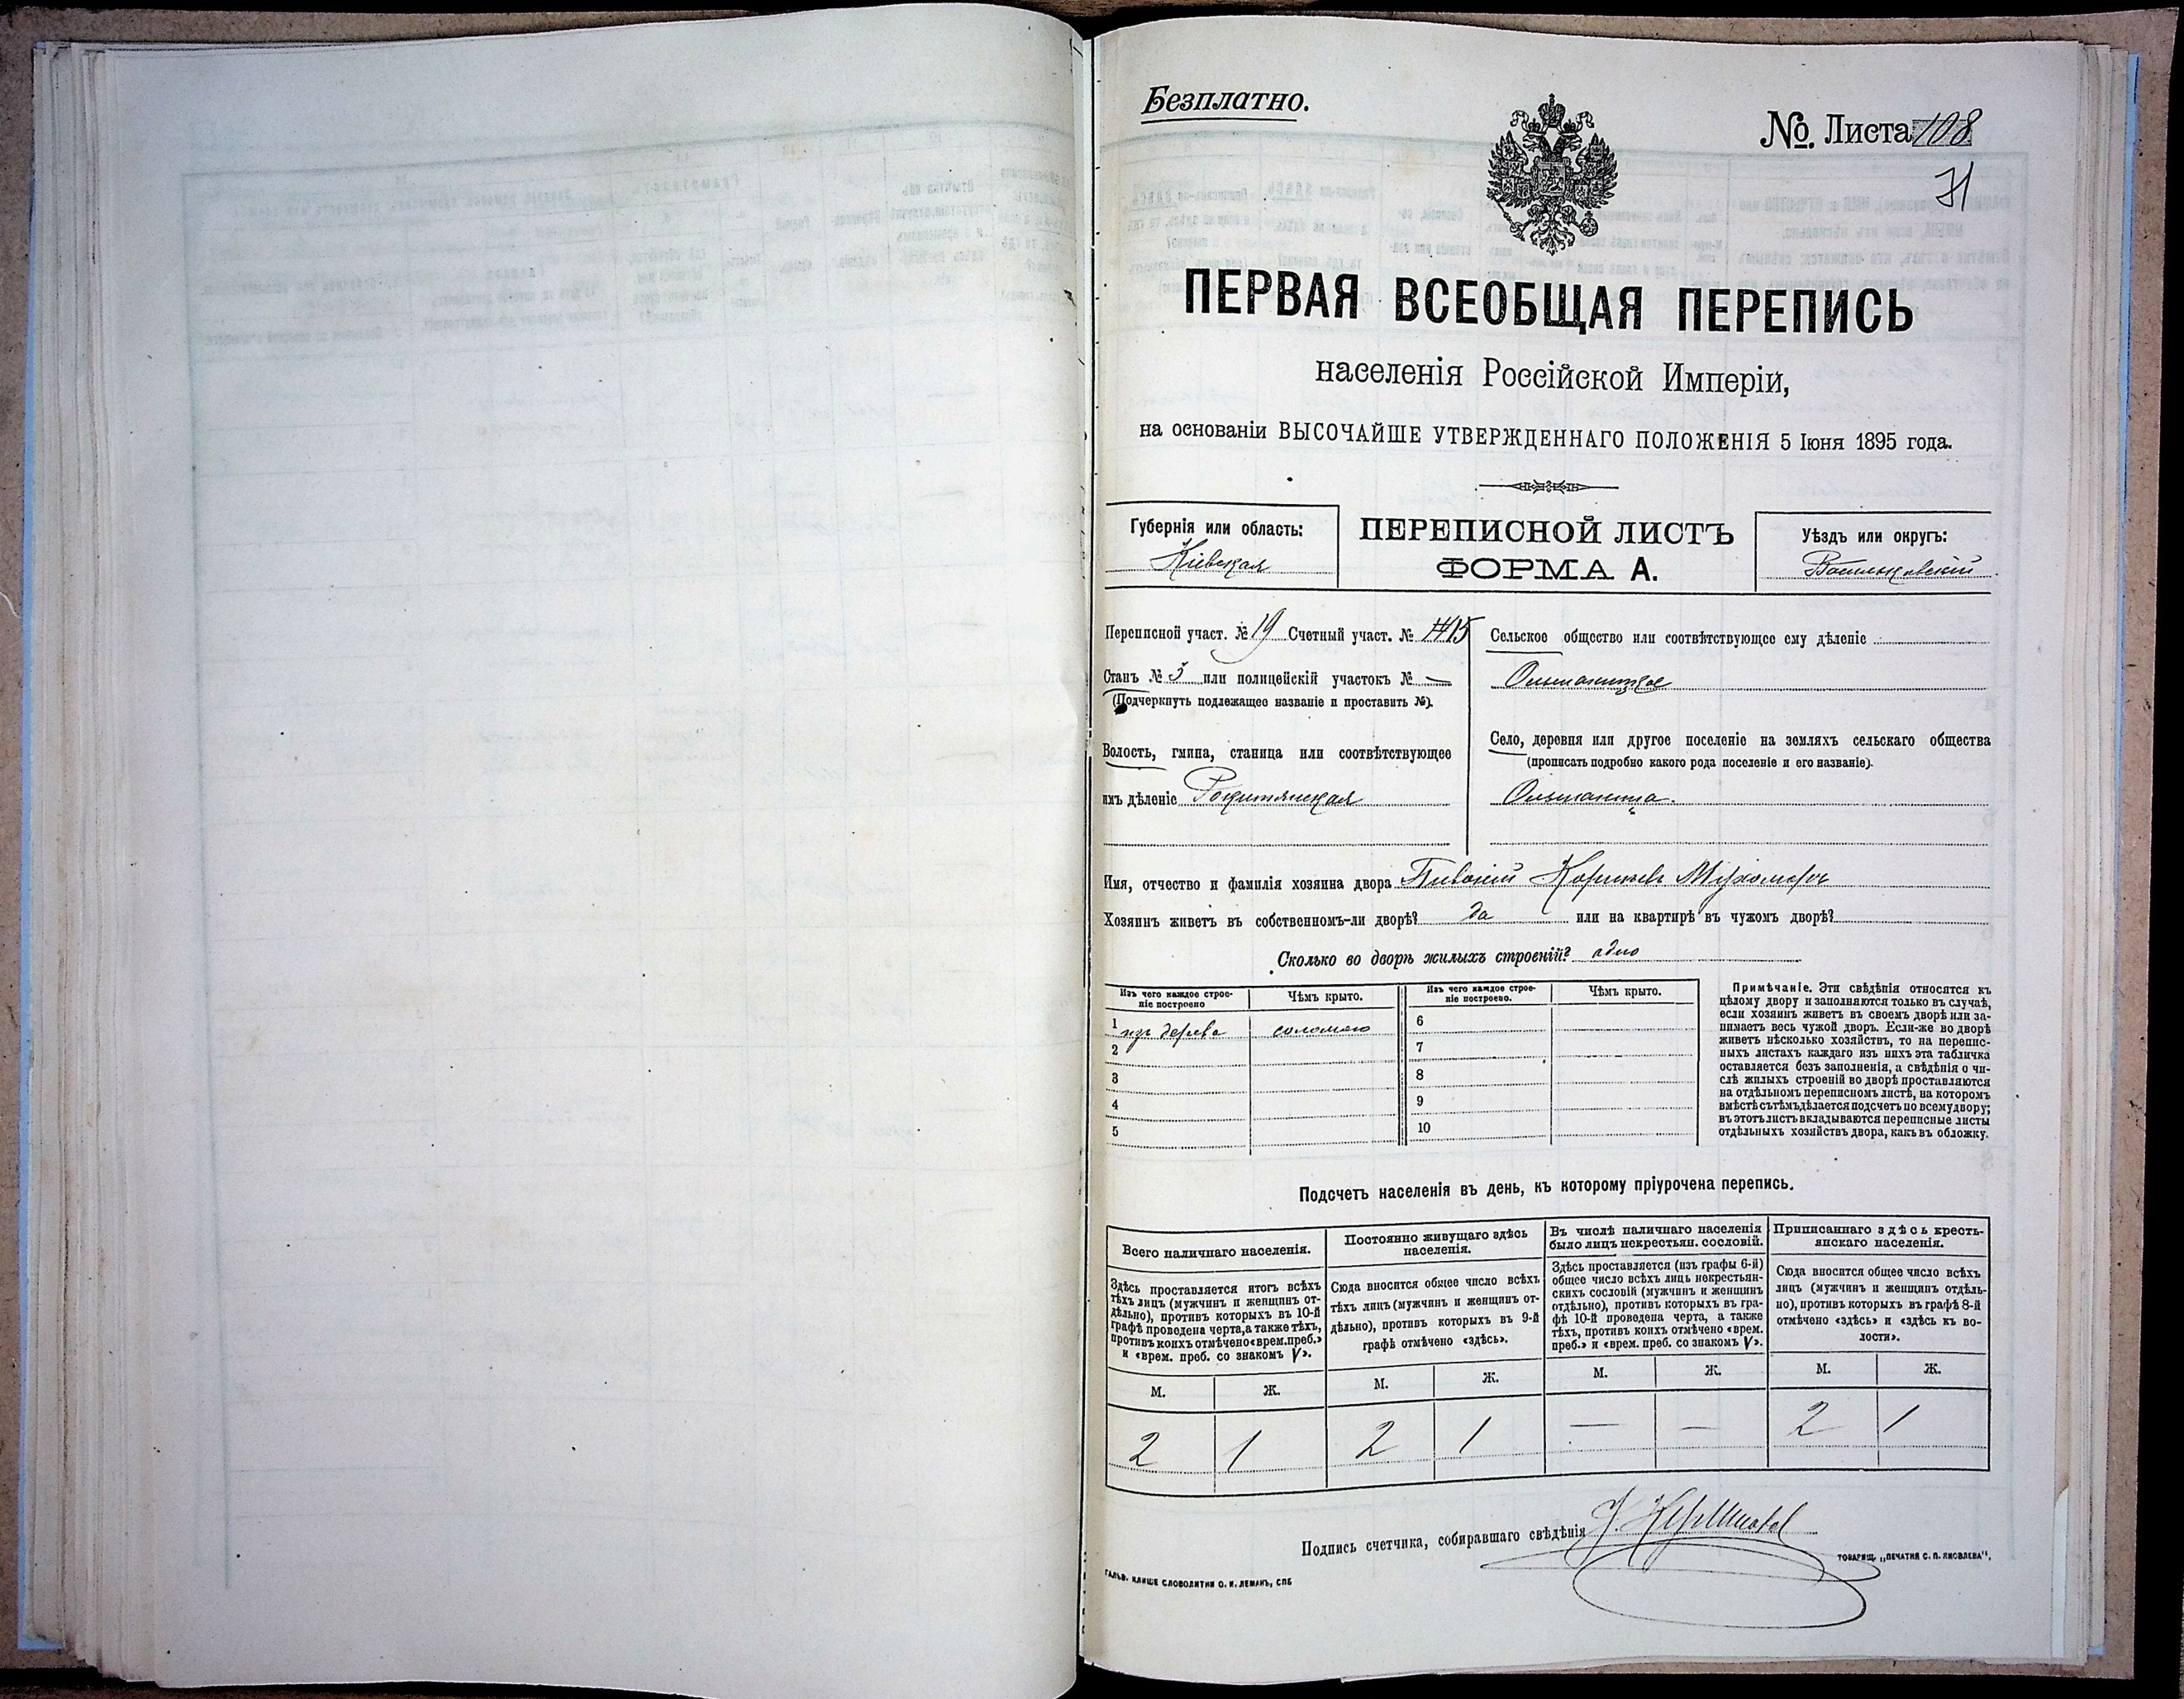 Безплатно.
№. Листа 108
71
ПЕРВАЯ ВСЕОБЩАЯ ПЕРЕПИСЬ
населенія Россійской Имперіи,
на основаніи ВЫСОЧАЙШЕ УТВЕРЖДЕННАГО ПОЛОЖЕНІЯ 5 Іюня 1895 года.
Губернія или область:
Кіевская
ПЕРЕПИСНОЙ ЛИСТЪ
ФОРМА А.
Уѣздъ или округъ:
Васильковскій
Переписной участ. № 19 Счетный участ. № 15
Станъ № 3 или полицейскій участокъ № —
(Подчеркнуть подлежащее названіе и проставить №).
Волость, гмина, станица или соотвѣтствующее
имъ дѣленіе Рокитянская
Сельское общество или соотвѣтствующее ему дѣленіе
Ольшаницкое
Село, деревня или другое поселеніе на земляхъ сельскаго общества
(прописать подробно какого рода поселеніе и его названіе).
Ольшаница.
Имя, отчество и фамилія хозяина двора
Хозяинъ живетъ въ собственномъ-ли дворѣ? да или на квартирѣ въ чужомъ дворѣ?
Сколько во дворѣ жилыхъ строеній? одно
Изъ чего каждое строе-
ніе построено
Чѣмъ крыто.
Изъ чего каждое строе-
ніе построено.
Чѣмъ крыто.
1 изъ дерева соломою
2
3
4
5
6
7
8
9
10
Примѣчаніе. Эти свѣдѣнія относятся къ
цѣлому двору и заполняются только въ случаѣ,
если хозяинъ живетъ въ своемъ дворѣ или за-
нимаетъ весь чужой дворъ. Если-же во дворѣ
живетъ нѣсколько хозяйствъ, то на перепис-
ныхъ листахъ каждаго изъ нихъ эта табличка
оставляется безъ заполненія, а свѣдѣнія о чи-
слѣ жилыхъ строеній во дворѣ проставляются
на отдѣльномъ переписномъ листѣ, на которомъ
вмѣстѣ съ тѣмъ дѣлается подсчетъ по всему двору;
въ этотъ листъ вкладываются переписные листы
отдѣльныхъ хозяйствъ двора, какъ въ обложку.
Подсчетъ населенія въ день, къ которому пріурочена перепись.
Всего наличнаго населенія.
Здѣсь проставляется итогъ всѣхъ
тѣхъ лицъ (мужчинъ и женщинъ от-
дѣльно), противъ которыхъ въ 10-й
графѣ проведена черта, а также тѣхъ,
противъ коихъ отмѣчено «врем. преб.»
и «врем. преб. со знакомъ V».
М. Ж.
2 1
Постоянно живущаго здѣсь
населенія.
Сюда вносится общее число всѣхъ
тѣхъ лицъ (мужчинъ и женщинъ от-
дѣльно), противъ которыхъ въ 9-й
графѣ отмѣчено «здѣсь».
М. Ж.
2 1
Въ числѣ наличнаго населенія
было лицъ некрестьян. сословій.
Здѣсь проставляется (изъ графы 6-й)
общее число всѣхъ лицъ некрестьян-
скихъ сословій (мужчинъ и женщинъ
отдѣльно), противъ которыхъ въ гра-
фѣ 10-й проведена черта, а также
тѣхъ, противъ коихъ отмѣчено «врем.
преб.» и «врем. преб. со знакомъ V».
М. Ж.
— —
Приписаннаго здѣсь кресть-
янскаго населенія.
Сюда вносится общее число всѣхъ
лицъ (мужчинъ и женщинъ отдѣль-
но), противъ которыхъ въ графѣ 8-й
отмѣчено «здѣсь» и «здѣсь къ во-
лости».
М. Ж.
2 1
Подпись счетчика, собиравшаго свѣдѣнія
ГАЛЬВ. КЛИШЕ СЛОВОЛИТНИ О. И. ЛЕМАНЪ, СПБ
ТОВАРИЩ. „ПЕЧАТНЯ С. П. ЯКОВЛЕВА",